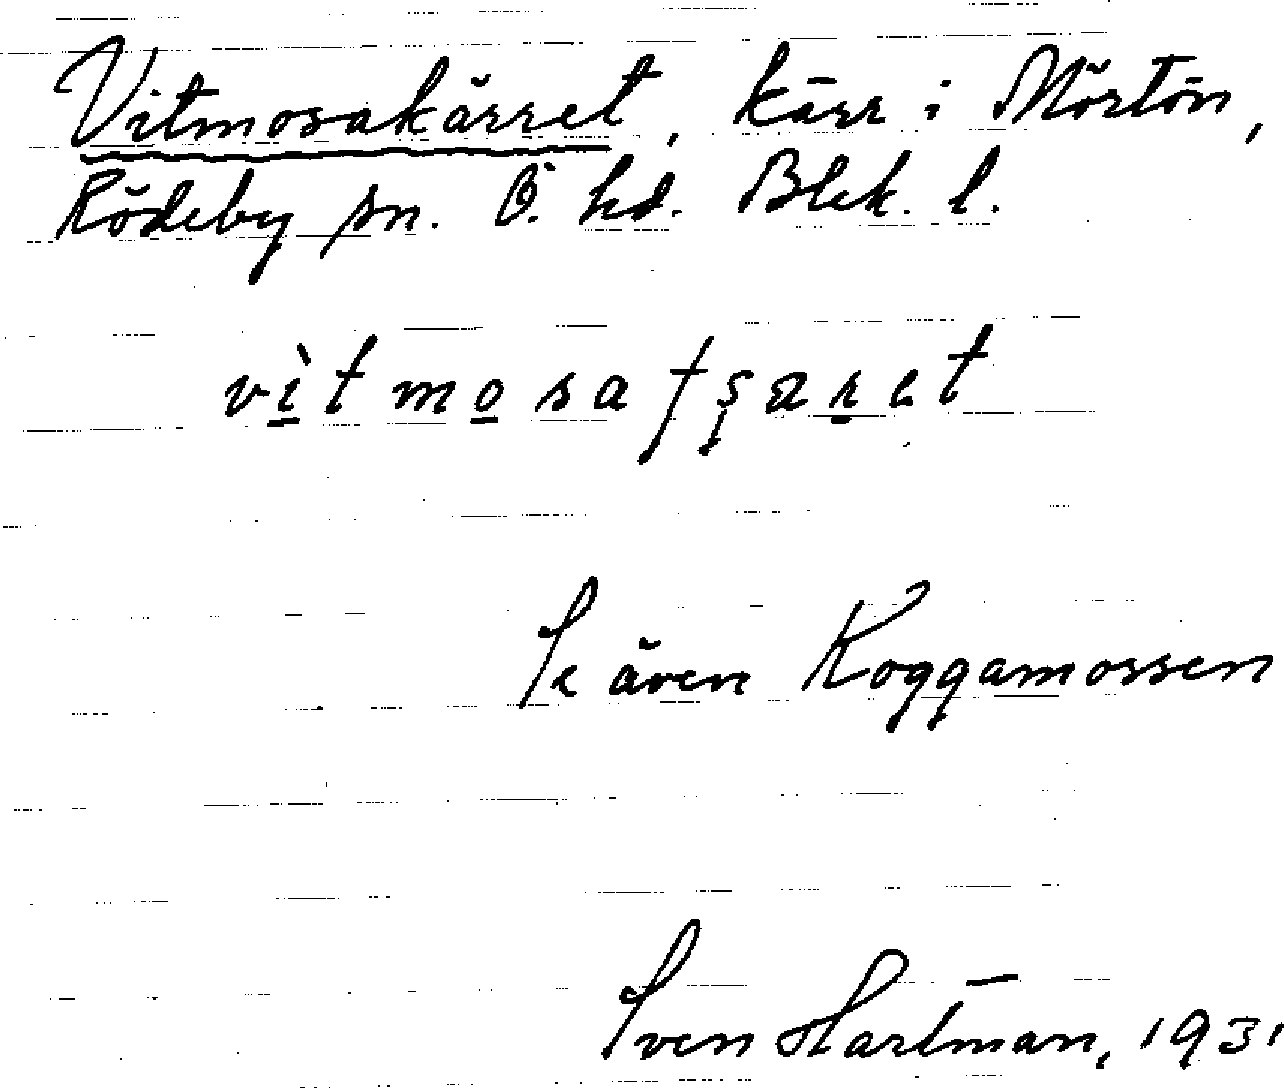 Vitmosakärret, kärr i Mörtön,
Rödeby sn. Ö. hd. Blek. l.
vìtmosatʂæret
Se även Koggamossen
Sven Hartman, 1931